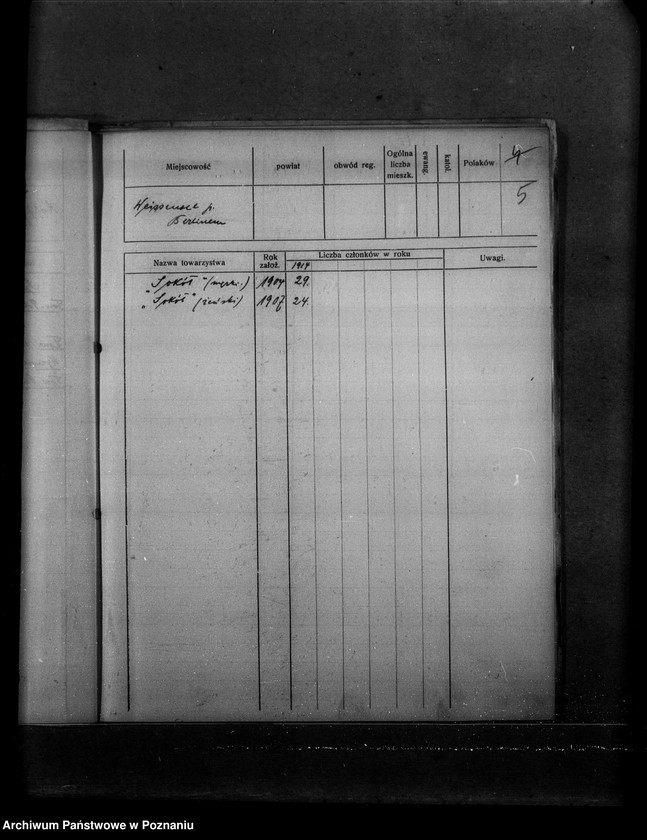 Miejscowość powiat obwód reg. Ogólna liczba mieszk. ewang. katol. Polaków 4
5
Weissensee p.
Berlinem
Nazwa towarzystwa Rok założ. Liczba członków w roku Uwagi.
1917
"Sokół" (męski.) 1904 29.
"Sokół" (żeński) 1907 24.
Archiwum Państwowe w Poznaniu